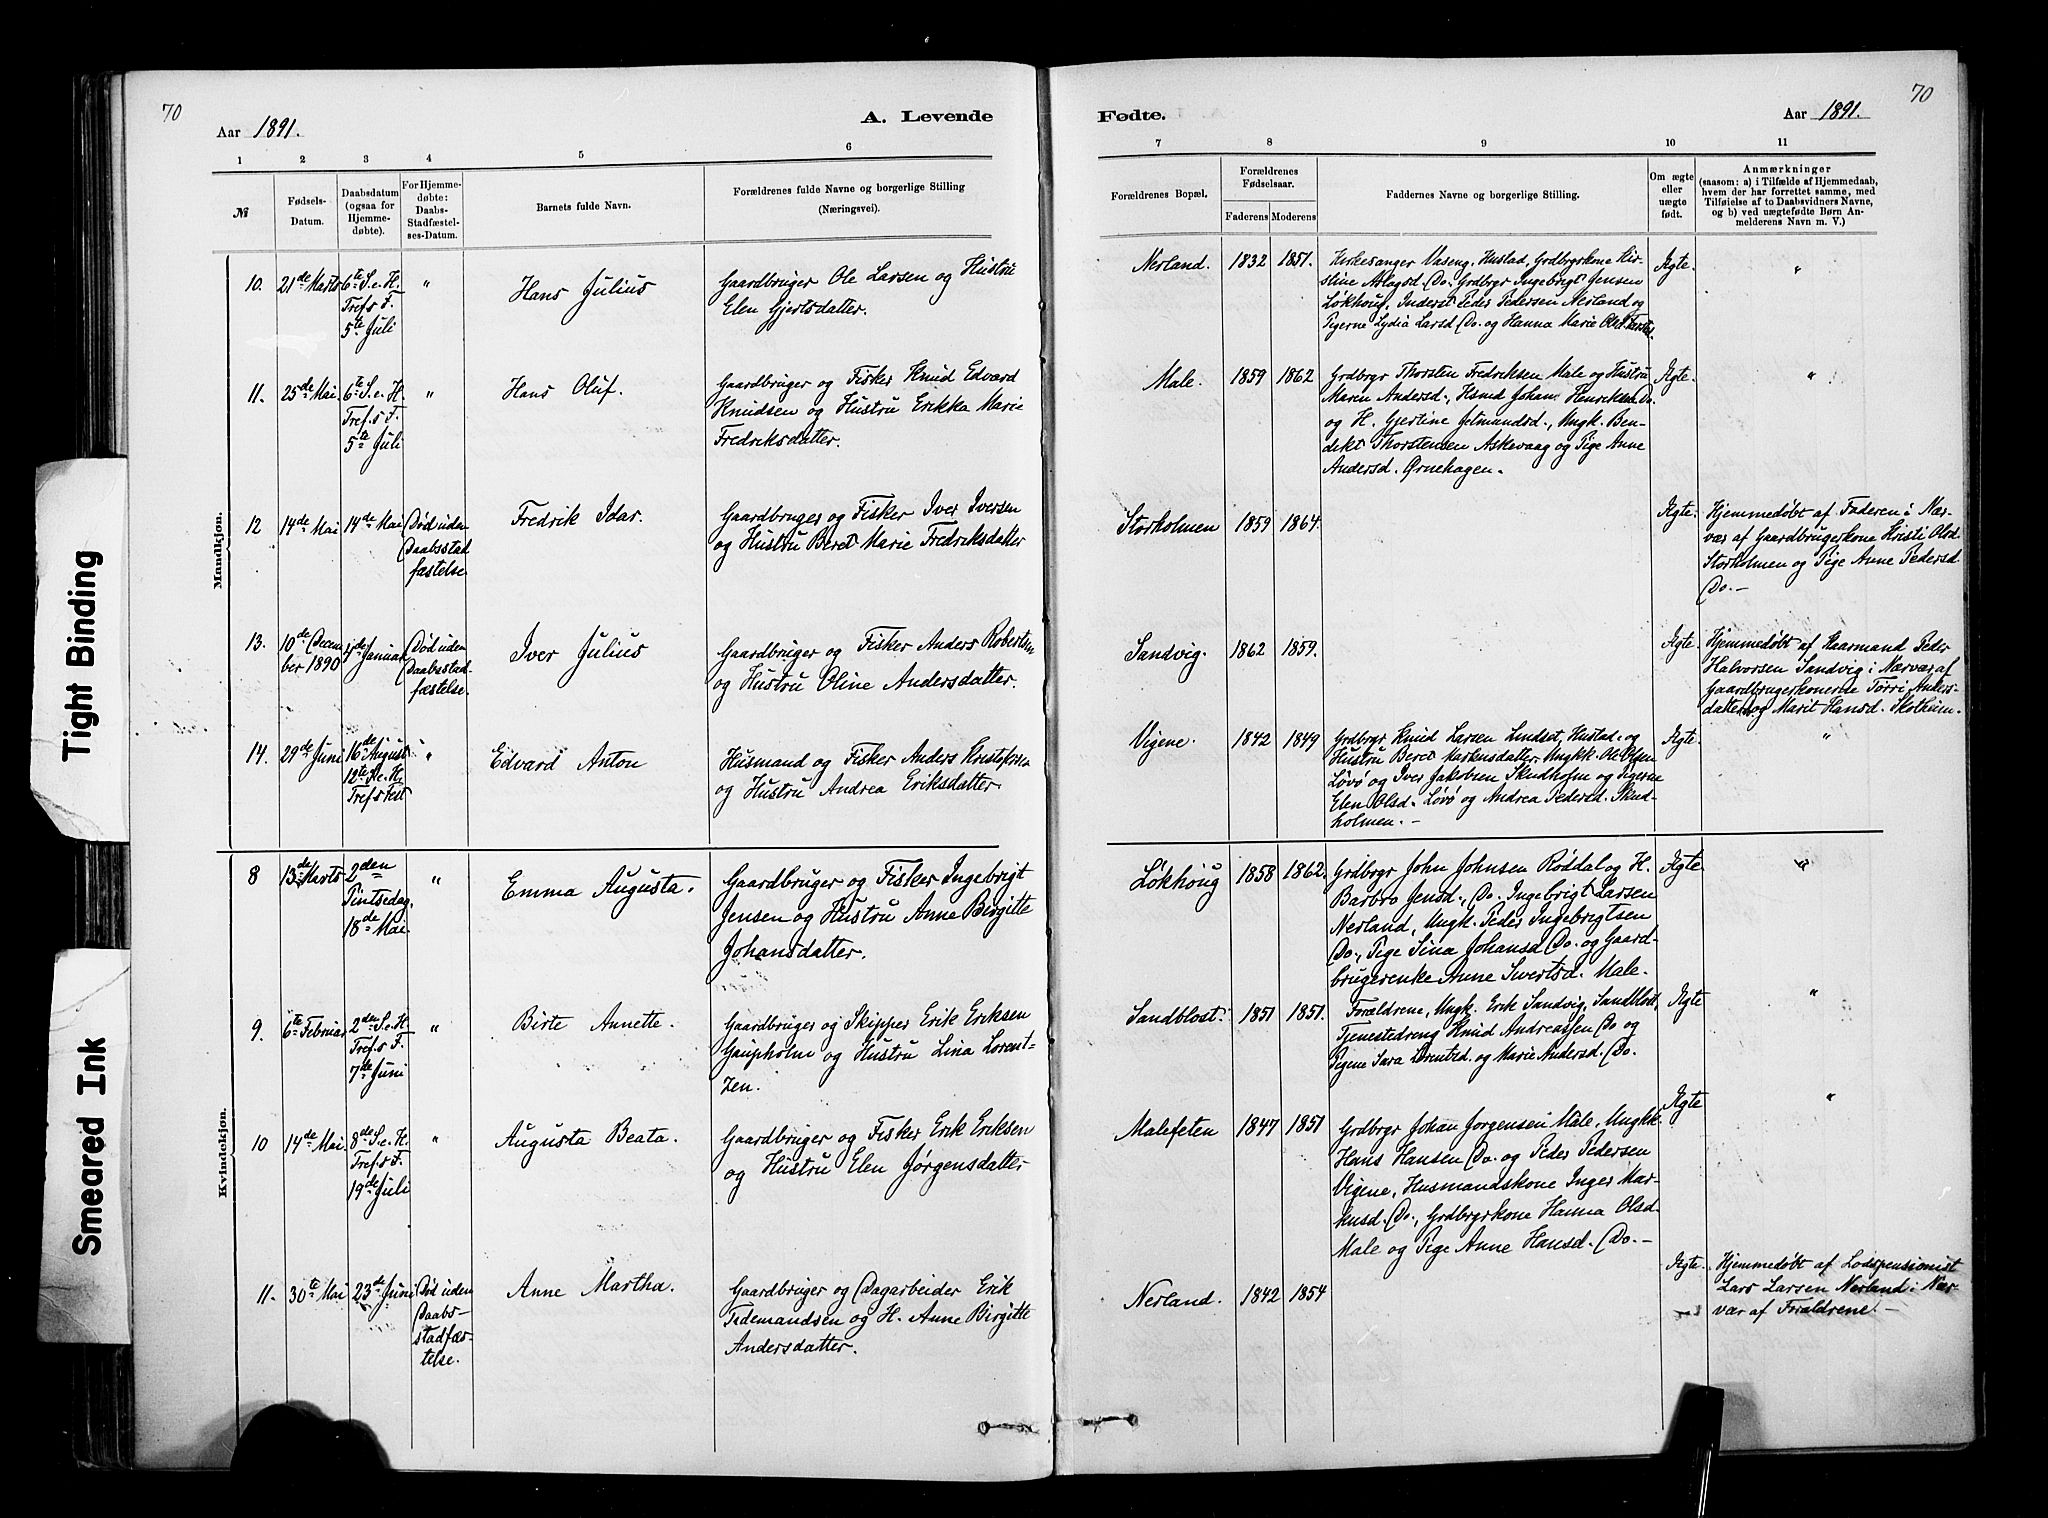 70
Aar 1891.
A. Levende
1 2 3 4 5 6
№
Fødsels-
Datum.
Daabsdatum
(ogsaa for
Hjemme-
døbte).
For Hjemme-
døbte:
Daabs-
Stadfæstel-
ses-Datum.
Barnets fulde Navn.
Forældrenes fulde Navne og borgerlige Stilling
(Næringsvei).
Mandkjøn.
10.
21de Marts
6te S. e. H.
Tref. s F.
5te Juli
"
Hans Julius
Gaardbruger Ole Larsen og Hustru
Elen Gjertsdatter.
11.
25de Mai.
6te S. e. H.
Tref. s F.
5te Juli
"
Hans Oluf.
Gaardbruger og Fisker Knud Edvard
Knudsen og Hustru Erikka Marie
Fredriksdatter.
12
14de Mai
14de Mai
Død uden
Daabsstad
fæstelse
Fredrik Idar.
Gaardbruger og Fisker Iver Iversen
og Hustru Beret Marie Fredriksdatter
13.
10de Decem
ber 1890
Januar
Død uden
Daabsstad
fæstelse.
Iver Julius
Gaardbruger og Fisker Anders Robertsen
og Hustru Oline Andersdatter.
14.
29de Juni
16de August
12te S. e. H.
Tref. s Fest
"
Edvard Anton
Husmand og Fisker Anders Kristofersen
og Hustru Andrea Eriksdatter.
Kvindekjøn.
8
13de Marts
2den
Pintsedag,
18de Mai.
"
Emma Augusta.
Gaardbruger og Fisker Ingebrigt
Jensen og Hustru Anne Birgitte
Johansdatter.
9.
6te Februar
2den S. e. H.
Tref. s F.
7de Juni
"
Birte Annette.
Gaardbruger og Skipper Erik Eriksen
Gaupholm og Hustru Lina Lorent-
zen.
10
14de Mai.
8de S. e. H.
Tref. s F.
19de Juli
"
Augusta Beata.
Gaardbruger og Fisker Erik Eriksen
og Hustru Elen Jørgensdatter
11.
30te Mai
23de Juni
Død uden
Daabs-
stadfæs-
telse.
Anne Martha.
Gaardbruger og Dagarbeider Erik
Tidemandsen og H. Anne Birgitte
Andersdatter.
70
Fødte.
Aar 1891.
7 8 9 10 11
Forældrenes Bopæl.
Forældrenes
Fødselsaar.
Faderens Moderens
Faddernes Navne og borgerlige Stilling.
Om ægte
eller
uægte
født.
Anmærkninger
(saasom: a) i Tilfælde af Hjemmedaab,
hvem der har forrettet samme, med
Tilføielse af to Daabsvidners Navne,
og b) ved uægtefødte Børn An-
melderens Navn m. V.)
Nerland. 1832 1851.
Kirkesanger Vaseng, Hustad, Grdbrgrkone Kir-
stine Aslagsd. Do. Grdbrgr Ingebrigt Jensen
Løkhoug, Inderst Peder Pedersen Nerland og
Pigerne Lydia Larsd. Do. og Hanna Marie Olsd.
Ægte.
"
Male. 1859 1862
Grdbrgr Thorsten Fredriksen Male og Hustru
Maren Andersd., Hsmd Johan Henriksen Do.
og H. Gjertine Jetmundsd., Ungk. Ben-
dikt Thorstensen Askevaag og Pige Anne
Andersd. Ørnehagen.
Ægte.
"
Storholmen 1859 1864.
Ægte.
Hjemmedøbt af Faderen i Nær-
vær af Gaardbrugerkone Kristi Olsd.
Storholmen og Pige Anne Pedersd.
Do.—
Sandvig. 1862 1859.
Ægte.
Hjemmedøbt af Kaarmand Peder
Halvorsen Sandvig i Nærvær af
Gaardbrugerkonerne Torri Anders-
datter og Marit Hansd. Skotheim.
Vigene. 1842 1849
Grdbrgr Knud Larsen Lindset, Hustad og
Hustru Beret Markusdatter, Ungkk. Ole Olsen
Løvø og Iver Jakobsen Skudholm og Pigerne
Elen Olsd. Løvø og Andrea Pedersd. Skud-
holmen.—
Ægte.
"
Løkhoug 1858 1862.
Grdbrgr John Johnsen Røddal og H.
Barbro Jensd., Do. Ingebrigt Larsen
Nerland, Ungk. Peder Ingebrigtsen
Do., Pige Sina Johansd. Do. og Gaard-
brugerenke Anne Sivertsd. Male.
Ægte
"
Sandblost. 1851 1851.
Forældrene, Ungk. Erik Sandvig, Sandblost,
Tjenestedreng Knud Andreassen Do og
Pigene Sara Lorentsd. og Marie Andersd. Do.
Ægte
"
Malefeten 1847 1851
Grdbrgr Johan Jørgensen Male, Ungkk.
Hans Hansen Do. og Peder Pedersen
Vigene, Husmandskone Inger Mar-
kusd. Do., Grdbrgrkone Hanna Olsd.
Male og Pige Anne Hansd. Do.—
Ægte
"
Nerland. 1842 1854
Ægte.
Hjemmedøbt af Lodspensionist
Lars Larsen Nerland i Nær-
vær af Forældrene.—
Tight Binding
Smeared Ink